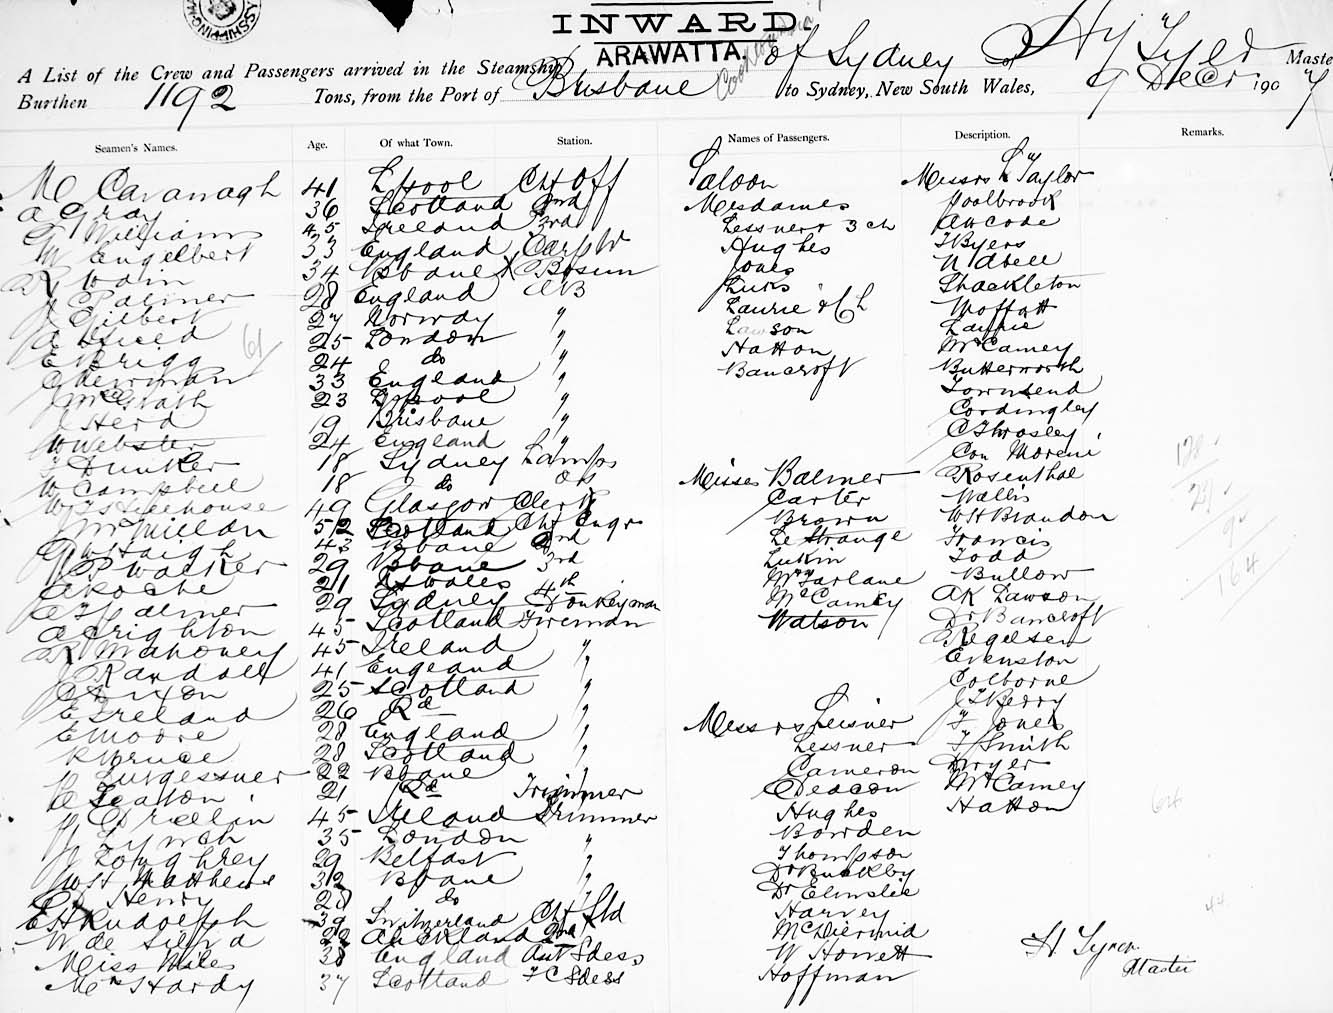 INWARD.
ARAWATTA. of Sydney Hy Tyler Master
A List of the Crew and Passengers arrived in the Steamship
Burthen 1192 Tons, from the Port of Brisbane to Sydney, New South Wales, 9 Decr 1907
Seamen's Names. Age. Of what Town. Station. Names of Passengers. Description. Remarks.
M Cavanagh 41 L'pool Cht Off
A Gray 36 Scotland 2nd
Williams 45 Ireland 3rd
W Engelbert 33 England Carp
R Wain 34 Bbane Bosun
J Palmer 28 England AB
J Gilbert 27 Norway "
25 London "
E Brigg 24 do "
33 England "
J McGrath 23 L'pool "
J Herd 19 Brisbane "
W Webster 24 England "
J Dunker 18 Sydney Lamps
W Campbell 18 do OS
49 Glasgow Clerk
McMillan 52 Scotland Cht Engr
W Haigh 43 Bbane 2nd
W P Walker 29 Bbane 3rd
A Roche 21 4th
Palmer 29 Sydney Donkeyman
A Crighton 45 Scotland Fireman
R Mahoney 45 Ireland "
J Randall 41 England "
Dixon 25 Scotland "
E Ireland 26
E Moore 28 England "
R Bruce 28 Scotland "
22 Bbane "
Seaton 21 Trimmer
45 Ireland Trimmer
J Lynch 35 London "
Loughrey 29 Belfast "
W H Matthews 32 Bbane "
Henry 28 do "
E H Rudolph 39 Switzerland Cht Std
W de Silva 22 Auckland 2nd
Miss Miles 38 England Aut Sdess
Mrs Hardy 37 Scotland FC Sdess
Saloon
Mesdames
Lessner & 3 ch
Hughes
Jones
Laurie & Ch
Lawson
Hatton
Bancroft
Misses Balmer
Carter
Brown
Le Strange
Lukin
McFarlane
McCamey
Watson
Messrs Leisner
Lessner
Cameron
Deacon
Hughes
Bowden
Thompson
Dr Buckby
Dr Elmslie
Harvey
McDiermid
W Howett
Hoffman
Messrs L Taylor
Joolbrook
Byers
Shackleton
Moffatt
Laurie
McCamey
Butterworth
Townsend
Cordingley
C Throsley
Con Moreni
Rosenthal
Wallis
W H Brandon
Francis
Todd
Bullow
A K Lawson
Dr Bancroft
Regelsen
Evenston
Colborne
J L Berry
F Jones
F Smith
Dwyer
McCamey
Hatton
128
27
9
164
61
64
44
H. Tyler
Master